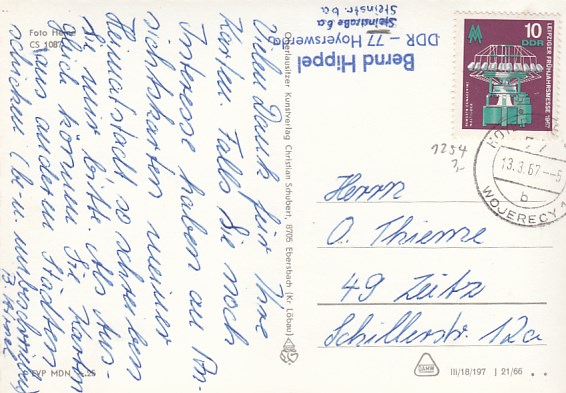 Vielen Dank für Ihre
Karte. Falls Sie noch
Interesse haben an An-
sichtskarten meiner
Heimatstadt so schreiben
Sie mir bitte. Als Aus-
gleich können Sie Karten
aus anderen Städten
schicken (b. u. ungeschrieben)
Bernd Hippel
DDR – 77 Hoyerswerda
Steinstraße 6a
Steinstr. 6a
Foto
CS 1087
Oberlausitzer Kunstverlag Christian Schubert, 8705 Ebersbach (Kr Löbau)
EVP MDN
10
DDR
LEIPZIGER FRÜHJAHRSMESSE 1967
77
13.3.67 –5
b
WOJERECY 1
1254
Herrn
O. Thieme
49 Zeitz
Schillerstr. 12a
III/18/197 | 21/66